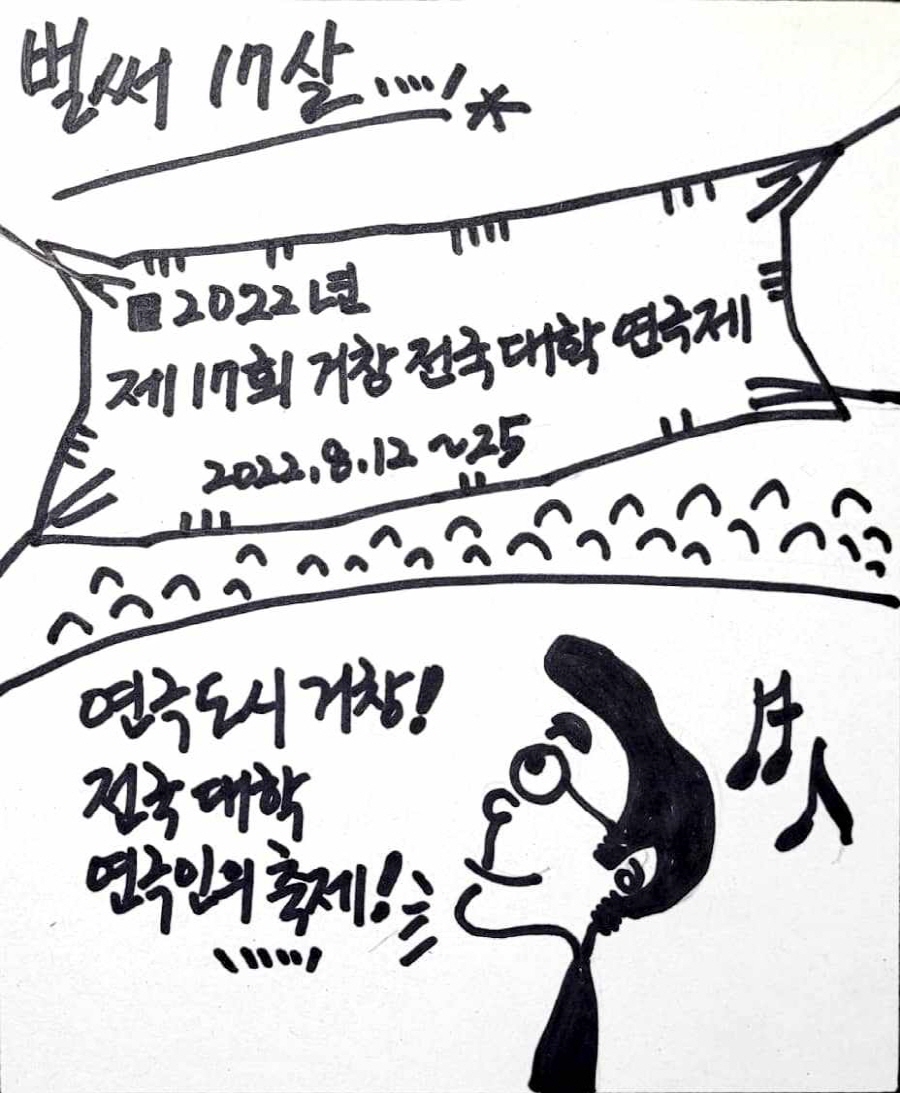 벌써 17살
2022년
제17회 거창 전국 대학 연극제
2022.8.12 ~25
연극도시 거창!
전국 대학
연극인의 축제!